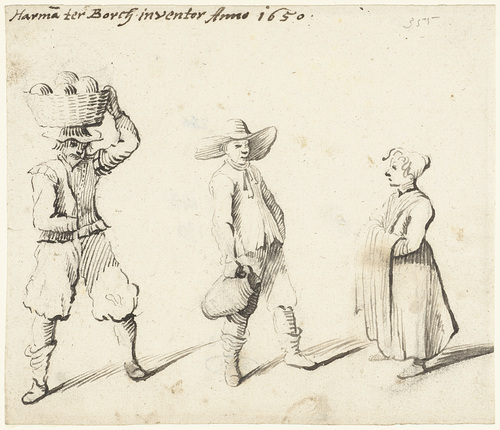 Harmã ter Borch inventor Anno 1650.
355